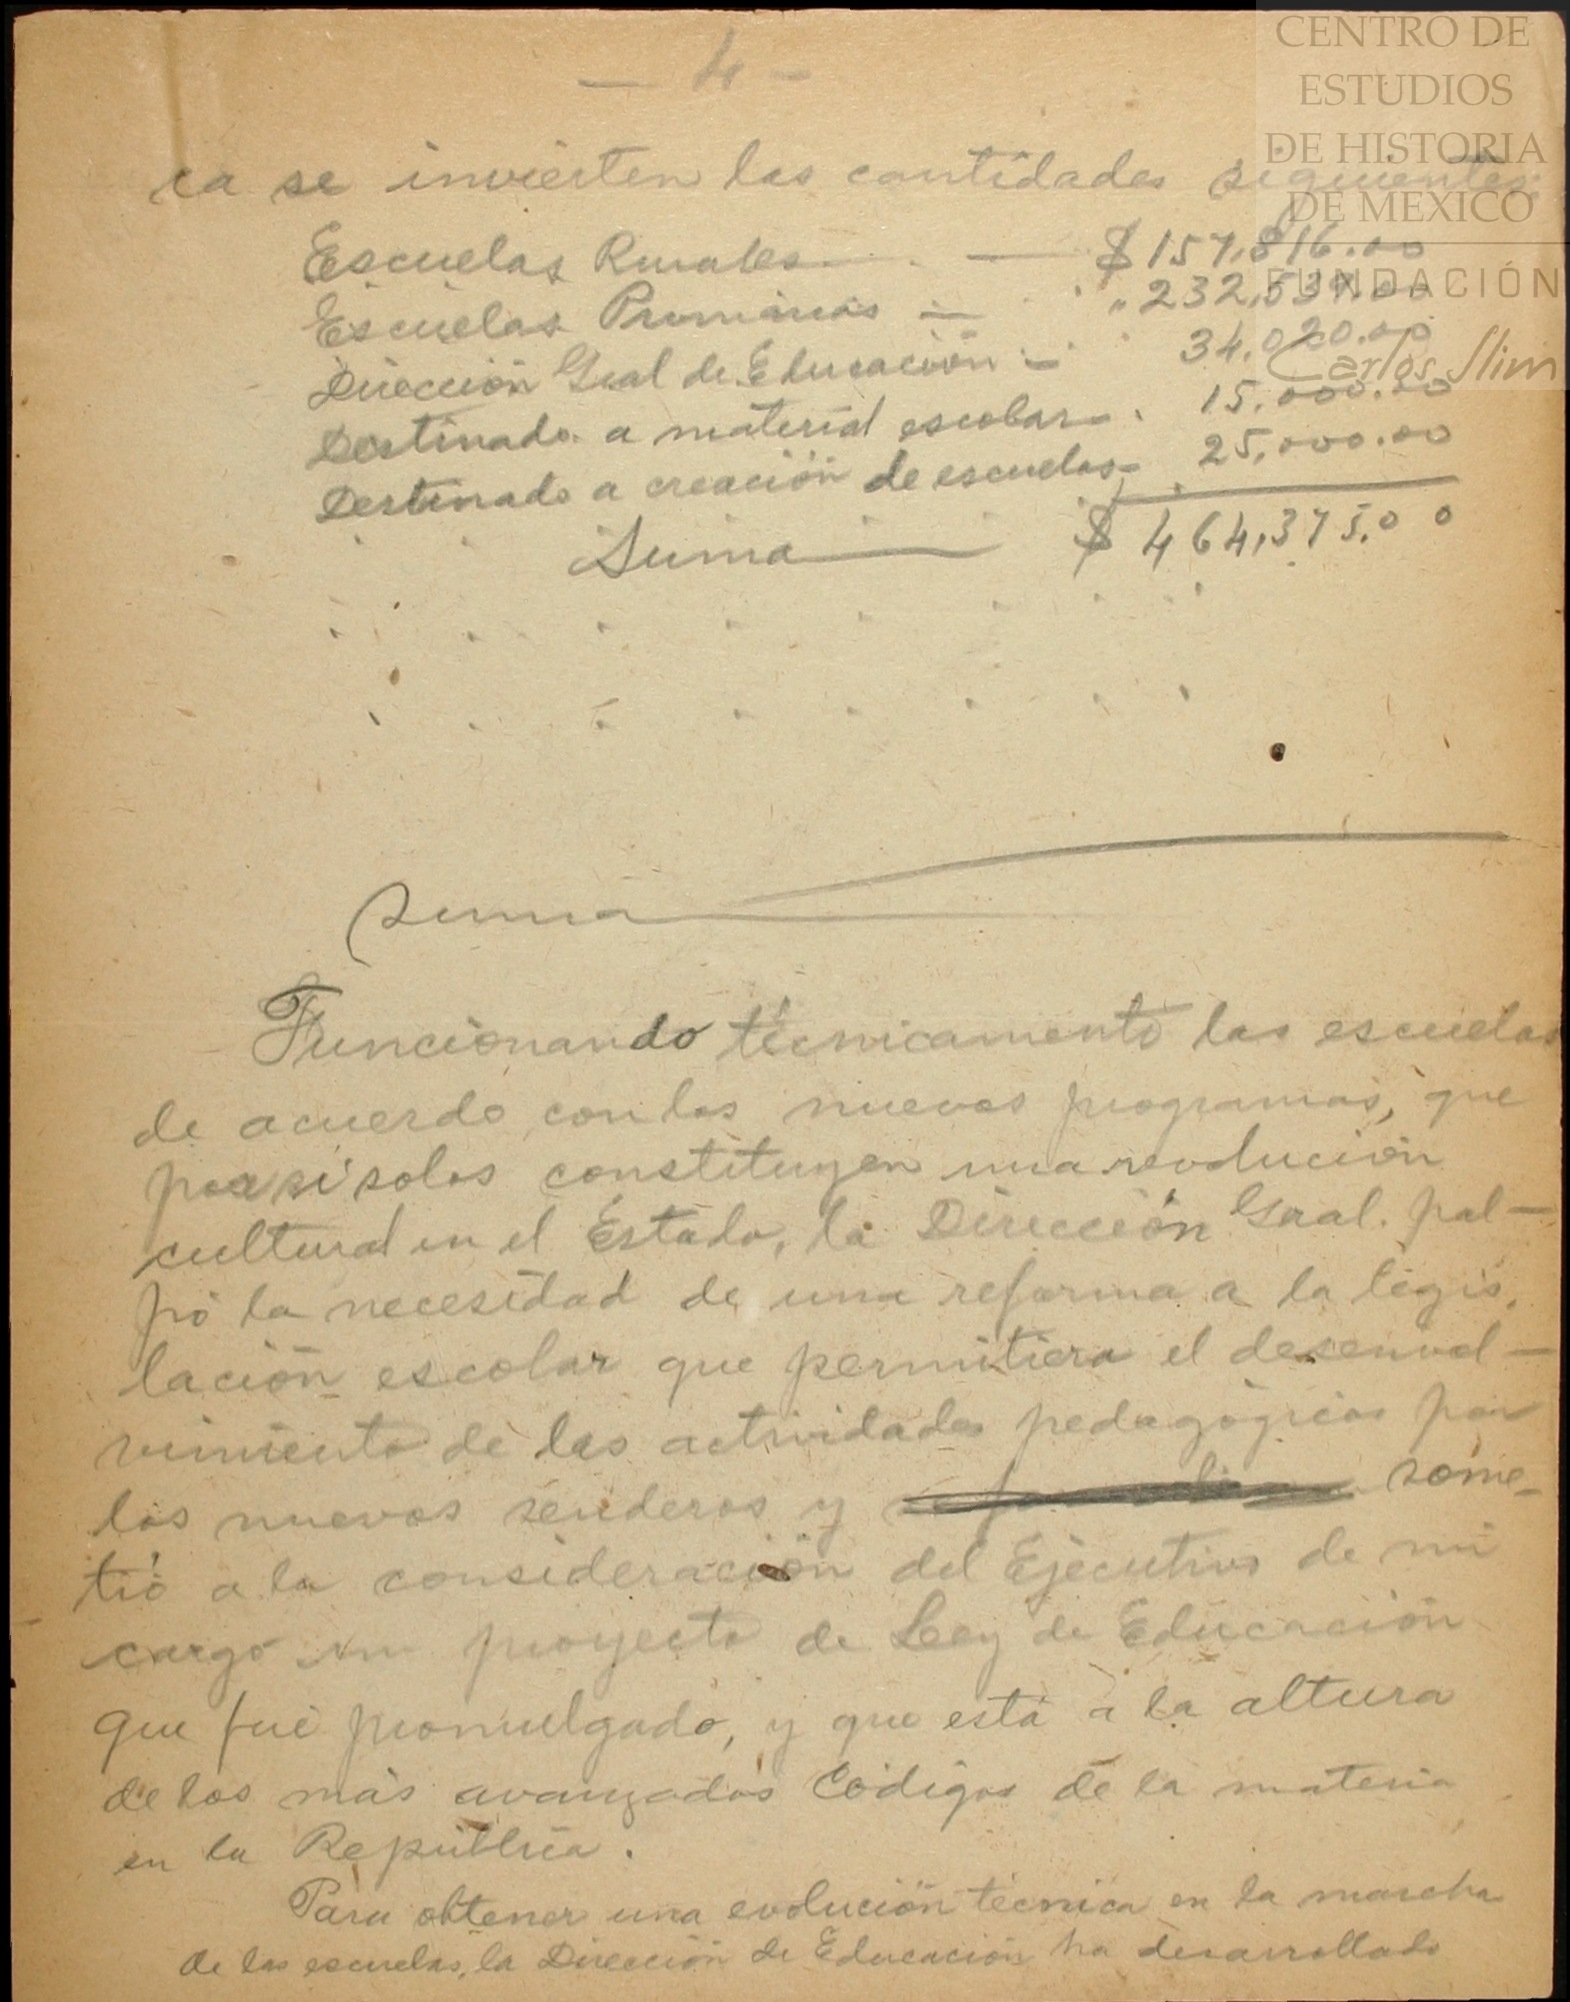 - 4 -
CENTRO DE
ESTUDIOS
DE HISTORIA
DE MEXICO
FUNDACIÓN
Carlos Slim
ca se invierten las cantidades siguientes:
Escuelas Rurales — $ 157,816.00
Escuelas Primarias — " 232,539.00
Dirección Gral de Educación — 34,020.00
Destinado a material escolar 15,000.00
Destinado a creación de escuelas 25,000.00
Suma — $ 464,375.00
Suma
Funcionando técnicamente las escuelas
de acuerdo con los nuevos programas, que
por sí solos constituyen una revolución
cultural en el Estado, la Dirección Gral. pal-
pó la necesidad de una reforma a la legis-
lación escolar que permitiera el desenvol-
vimiento de las actividades pedagógicas por
los nuevos senderos y some-
tió a la consideración del Ejecutivo de mi
cargo un proyecto de Ley de Educación
que fué promulgado, y que está a la altura
de los más avanzados Códigos de la materia
en la República.
Para obtener una evolución técnica en la marcha
de las escuelas, la Dirección de Educación ha desarrollado